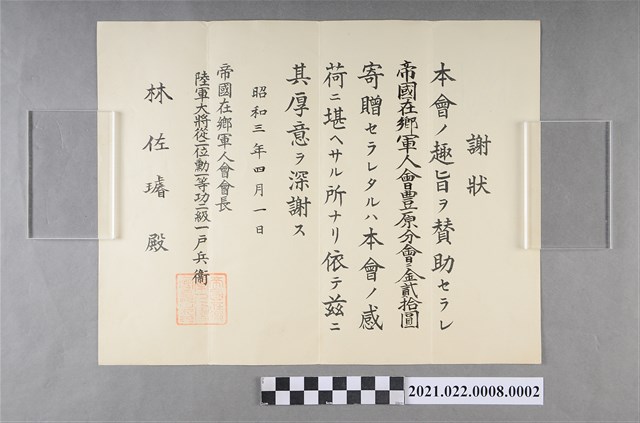 謝狀
本會ノ趣旨ヲ賛助セラレ
帝國在鄉軍人會豐原分會ニ金貳拾圓
寄贈セラレタルハ本會ノ感
荷ニ堪ヘサル所ナリ依テ茲ニ
其厚意ヲ深謝ス
昭和三年四月一日
帝國在鄉軍人會會長
陸軍大將從二位勳一等功二級一戶兵衞
林佐璿殿
2021.022.0008.0002